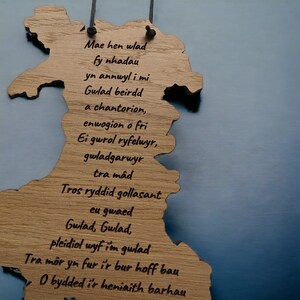 Mae hen wlad
fy nhadau
yn annwyl i mi
Gwlad beirdd
a chantorion,
enwogion o fri
Ei gwrol ryfelwyr,
gwladgarwyr
tra mâd
Tros ryddid gollasant
eu gwaed
Gwlad, Gwlad,
pleidiol wyf i'm gwlad
Tra môr yn fur i'r bur hoff bau
O bydded i'r heniaith barhau